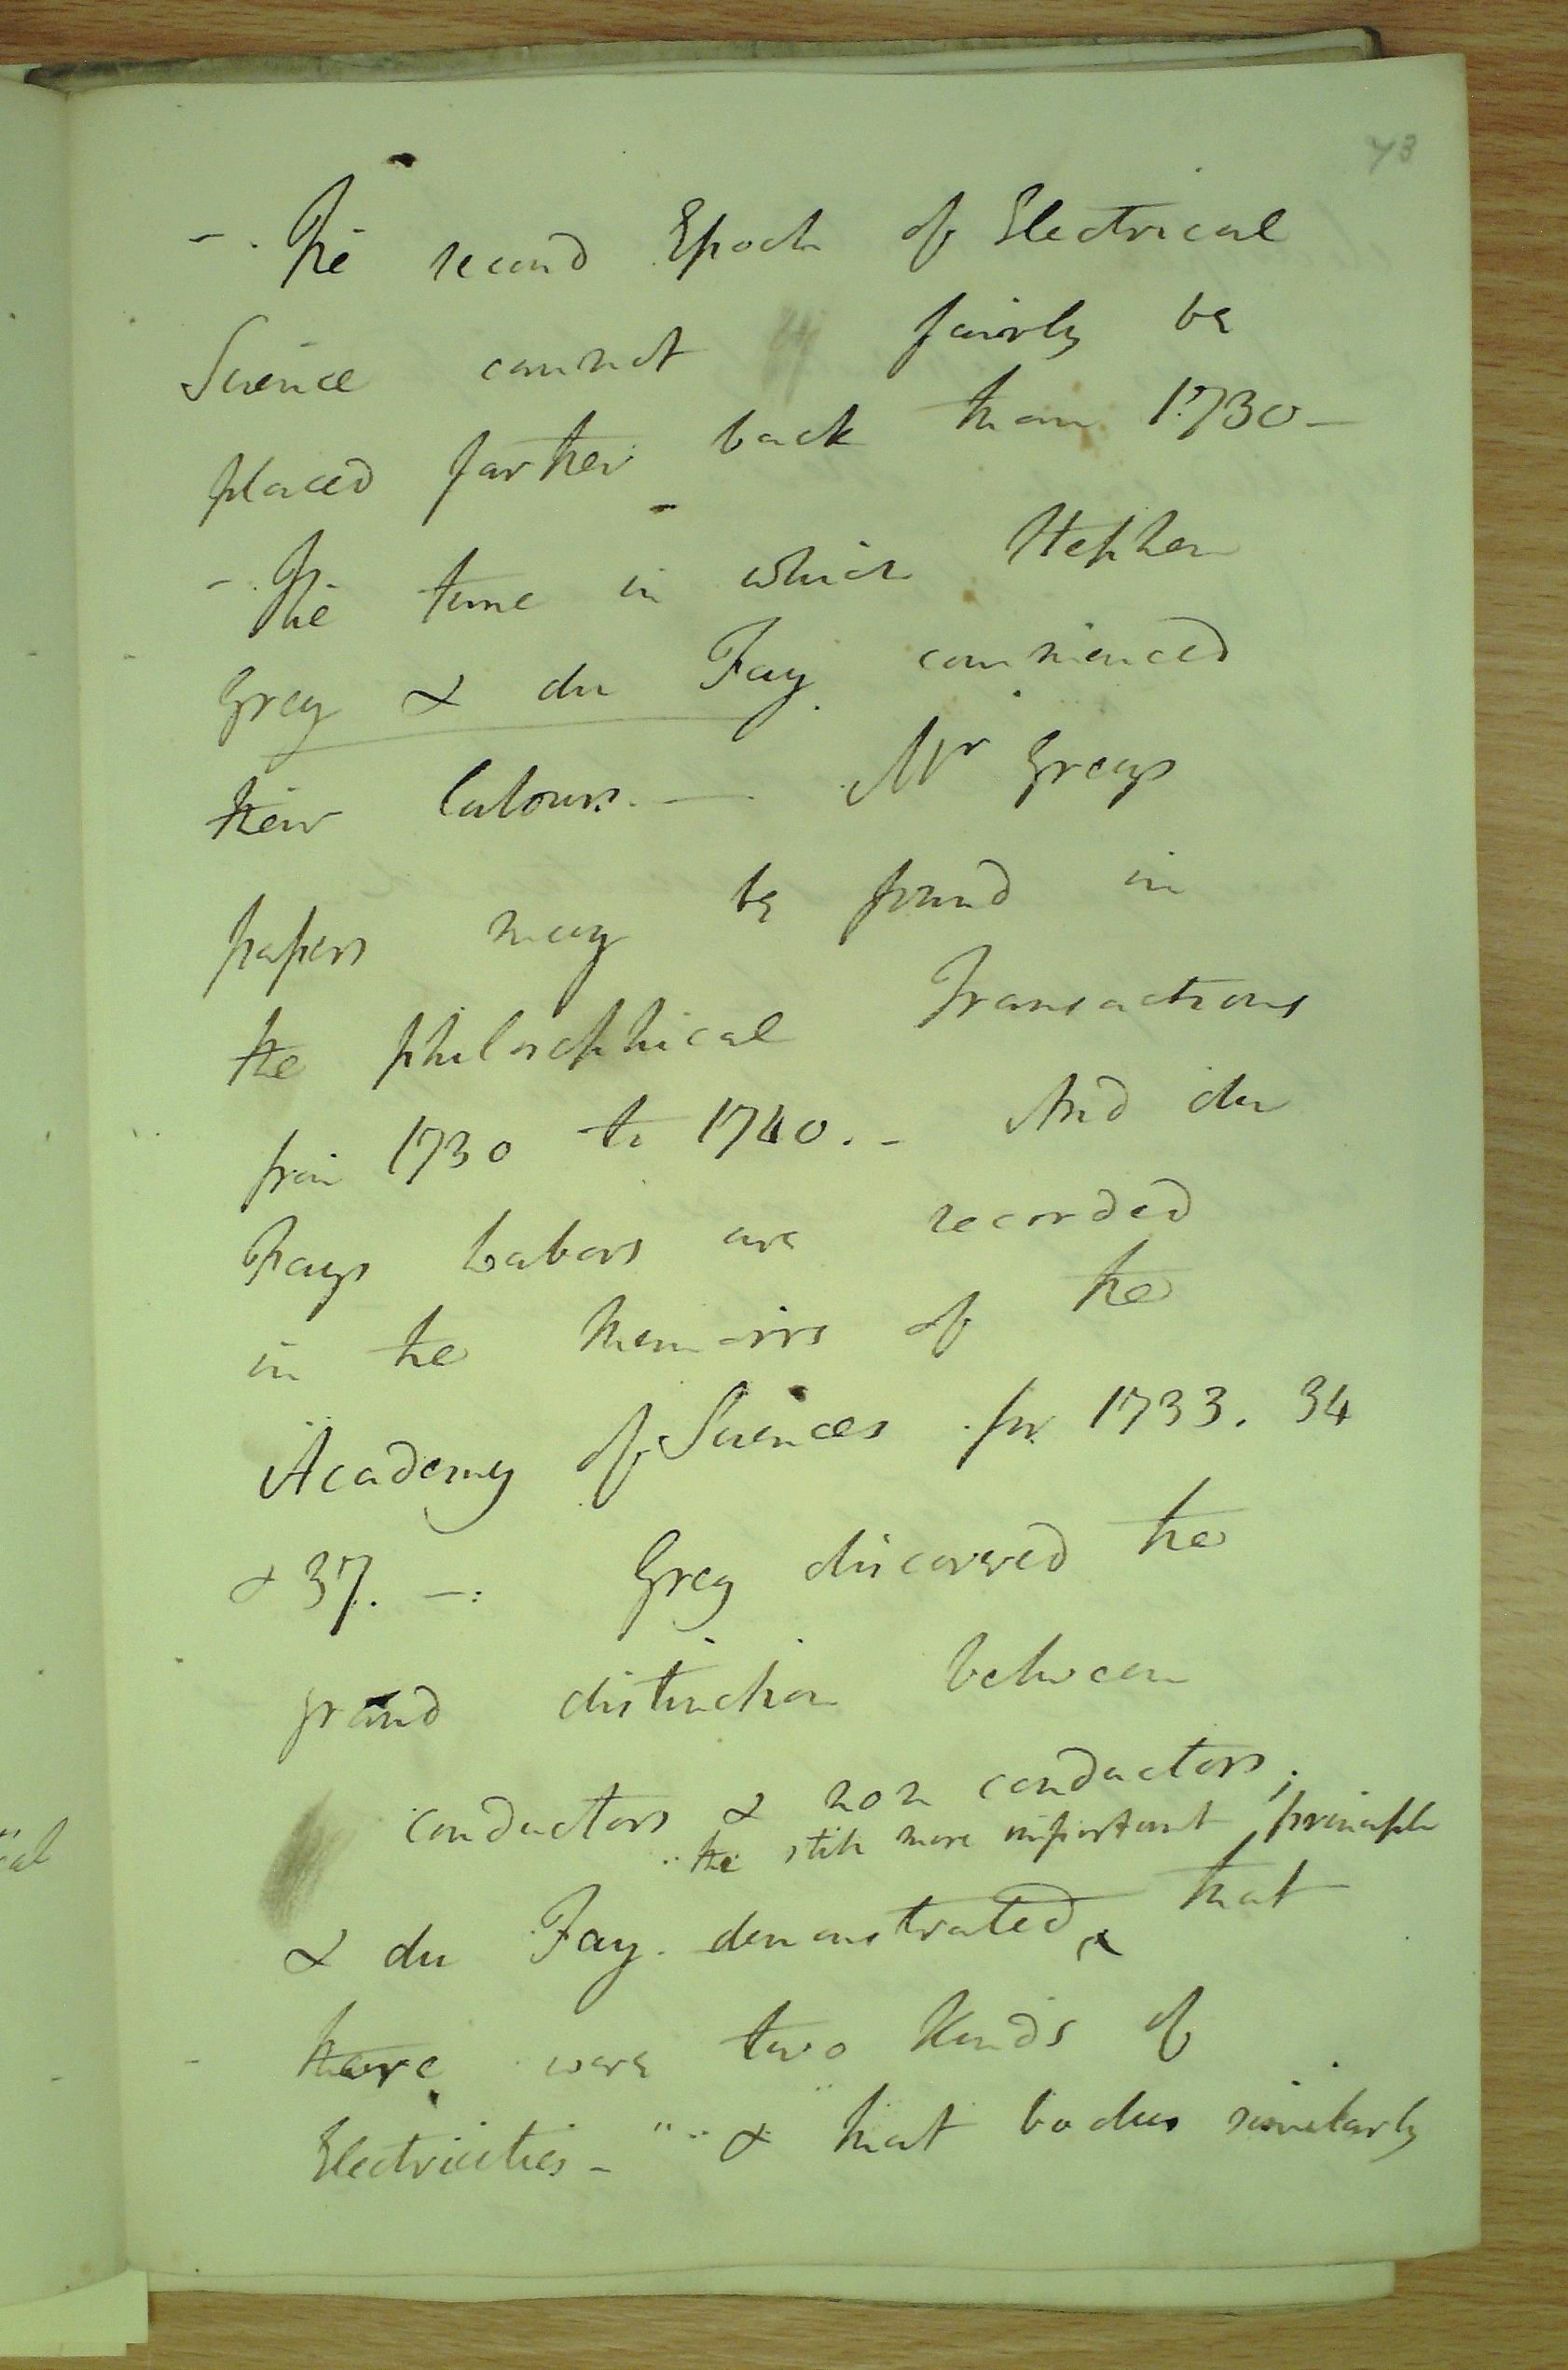 73
-. The second Epoch of Electrical
Science cannot fairly be
placed farther back than 1730 -
-. The time in which Stephen
Grey & du Fay. commenced
their labours. — Mr Greys
papers may be found in
the philosophical Transactions
from 1730 to 1740. - And du
Fays Labors are recorded
in the Memoirs of the
Academy of Sciences for 1733. 34
& 37. -: Grey discovered the
grand distinction between
conductors & non conductors;
the still more important principle
& du Fay. demonstrated that
there were two Kinds of
Electricities - " " & that bodies similarly